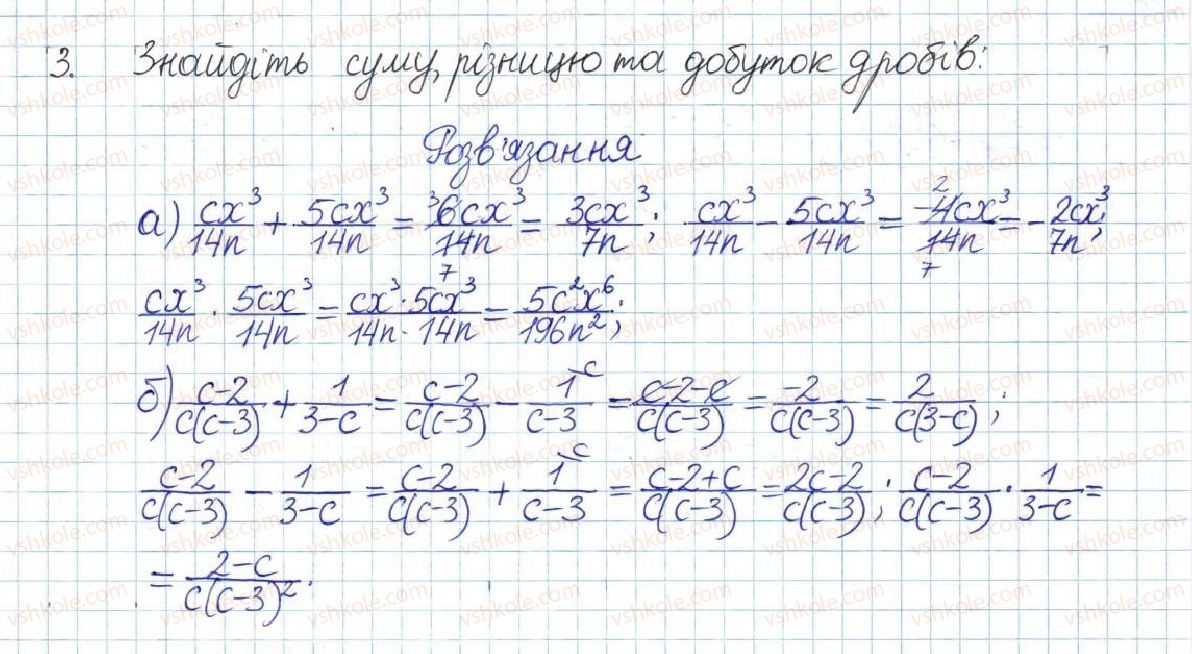 3. Знайдіть суму, різницю та добуток дробів:
Розв'язання
а) cx³/14n + 5cx³/14n = ³6cx³/14n₇ = 3cx³/7n; cx³/14n - 5cx³/14n = -4²cx³/14n₇ = -2cx³/7n;
cx³/14n · 5cx³/14n = cx³·5cx³/14n·14n = 5c²x⁶/196n²;
б) c-2/c(c-3) + 1/3-c = c-2/c(c-3) - 1\c/c-3 = c-2-c/c(c-3) = -2/c(c-3) = 2/c(3-c);
c-2/c(c-3) - 1/3-c = c-2/c(c-3) + 1\c/c-3 = c-2+c/c(c-3) = 2c-2/c(c-3); c-2/c(c-3) · 1/3-c =
= 2-c/c(c-3)².